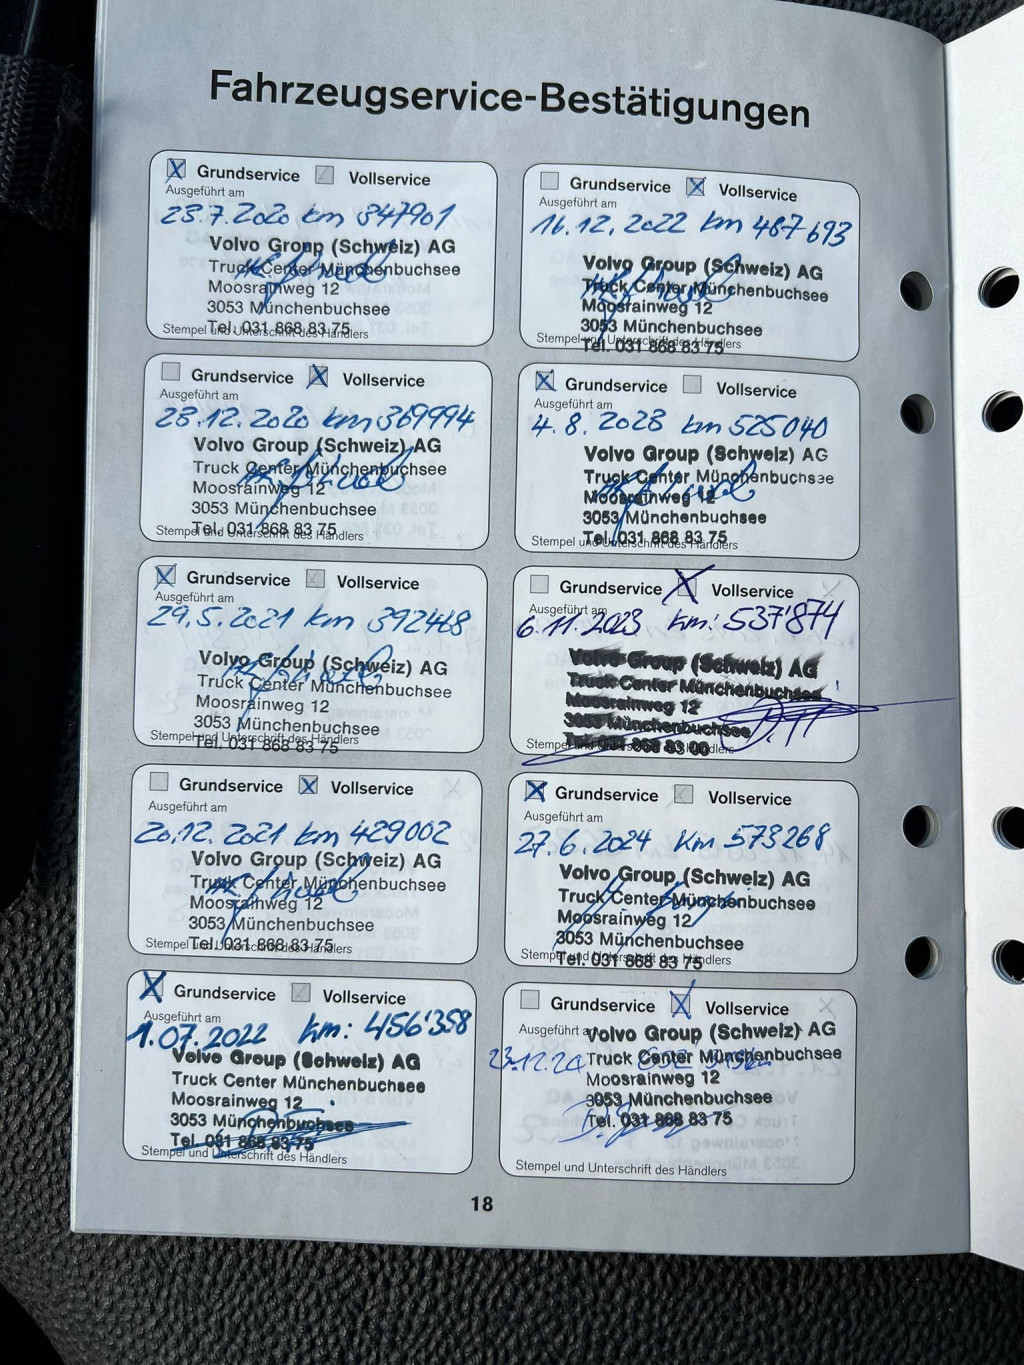 Fahrzeugservice-Bestätigungen
Grundservice Vollservice
Ausgeführt am
23.7.2020 km 347901
Volvo Group (Schweiz) AG
Truck Center Münchenbuchsee
Moosrainweg 12
3053 Münchenbuchsee
Tel. 031 868 83 75
Stempel und Unterschrift des Händlers
Grundservice Vollservice
Ausgeführt am
23.12.2020 km 369994
Volvo Group (Schweiz) AG
Truck Center Münchenbuchsee
Moosrainweg 12
3053 Münchenbuchsee
Tel. 031 868 83 75
Stempel und Unterschrift des Händlers
Grundservice Vollservice
Ausgeführt am
29.5.2021 km 392468
Volvo Group (Schweiz) AG
Truck Center Münchenbuchsee
Moosrainweg 12
3053 Münchenbuchsee
Tel. 031 868 83 75
Stempel und Unterschrift des Händlers
Grundservice Vollservice
Ausgeführt am
20.12.2021 km 429002
Volvo Group (Schweiz) AG
Truck Center Münchenbuchsee
Moosrainweg 12
3053 Münchenbuchsee
Tel. 031 868 83 75
Stempel und Unterschrift des Händlers
Grundservice Vollservice
Ausgeführt am
1.07.2022 km: 456'358
Volvo Group (Schweiz) AG
Truck Center Münchenbuchsee
Moosrainweg 12
3053 Münchenbuchsee
Tel. 031 868 83 75
Stempel und Unterschrift des Händlers
Grundservice Vollservice
Ausgeführt am
16.12.2022 km 487693
Volvo Group (Schweiz) AG
Truck Center Münchenbuchsee
Moosrainweg 12
3053 Münchenbuchsee
Tel. 031 868 83 75
Stempel und Unterschrift des Händlers
Grundservice Vollservice
Ausgeführt am
4.8.2023 km 525040
Volvo Group (Schweiz) AG
Truck Center Münchenbuchsee
Moosrainweg 12
3053 Münchenbuchsee
Tel. 031 868 83 75
Stempel und Unterschrift des Händlers
Grundservice Vollservice
Ausgeführt am
6.11.2023 km: 537'874
Volvo Group (Schweiz) AG
Truck Center Münchenbuchsee
Moosrainweg 12
3053 Münchenbuchsee
Tel. 031 868 83 00
Stempel und Unterschrift des Händlers
Grundservice Vollservice
Ausgeführt am
27.6.2024 Km 573268
Volvo Group (Schweiz) AG
Truck Center Münchenbuchsee
Moosrainweg 12
3053 Münchenbuchsee
Tel. 031 868 83 75
Stempel und Unterschrift des Händlers
Grundservice Vollservice
Ausgeführt am
Volvo Group (Schweiz) AG
23.12.24 Truck Center Münchenbuchsee
Moosrainweg 12
3053 Münchenbuchsee
Tel. 031 868 83 75
Stempel und Unterschrift des Händlers
18